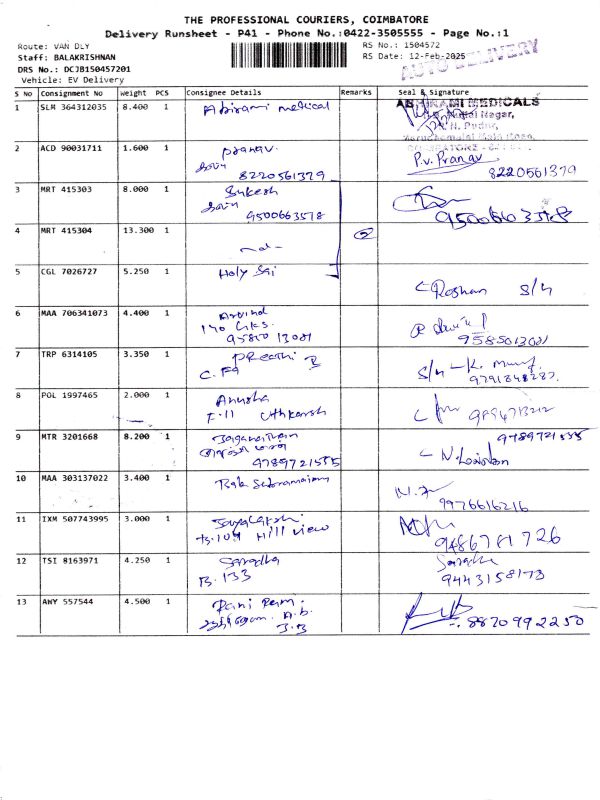 THE PROFESSIONAL COURIERS, COIMBATORE
Delivery Runsheet - P41 - Phone No.:0422-3505555 - Page No.:1
Route: VAN DLY
RS No.: 1504572
Staff: BALAKRISHNAN
RS Date: 12-Feb-2025
AUTO DELIVERY
DRS No.: DCJB150457201
Vehicle: EV Delivery
S No Consignment No Weight PCS Consignee Details Remarks Seal & Signature
1 SLM 364312035 8.400 1 Abirami medical
ABHIRAMI MEDICALS
Nagar,
2 ACD 90031711 1.600 1 pranav
8220561379
P.v. Pranav
8220561379
3 MRT 415303 8.000 1 Sukesh
9500663578
9500663578
4 MRT 415304 13.300 1 -do- 2
5 CGL 7026727 5.250 1 Holy Sai
Roshan S/n
6 MAA 706341073 4.400 1 Arvind
140
9585013081
9585013081
7 TRP 6314105 3.350 1 Preethi B
C. F9
8 POL 1997465 2.000 1 Anusha
F-11 Uthkarsh
9 MTR 3201668 8.200 1 Jaganathan
9789721555
9789721555
10 MAA 303137022 3.400 1 Bala Subramaiam
9976616216
11 IXM 507743995 3.000 1
B.104 Hill view
9486781726
12 TSI 8163971 4.250 1 Saradha
B. 133
Saradha
9443158173
13 AWY 557544 4.500 1 Rani Ram.
8870992250